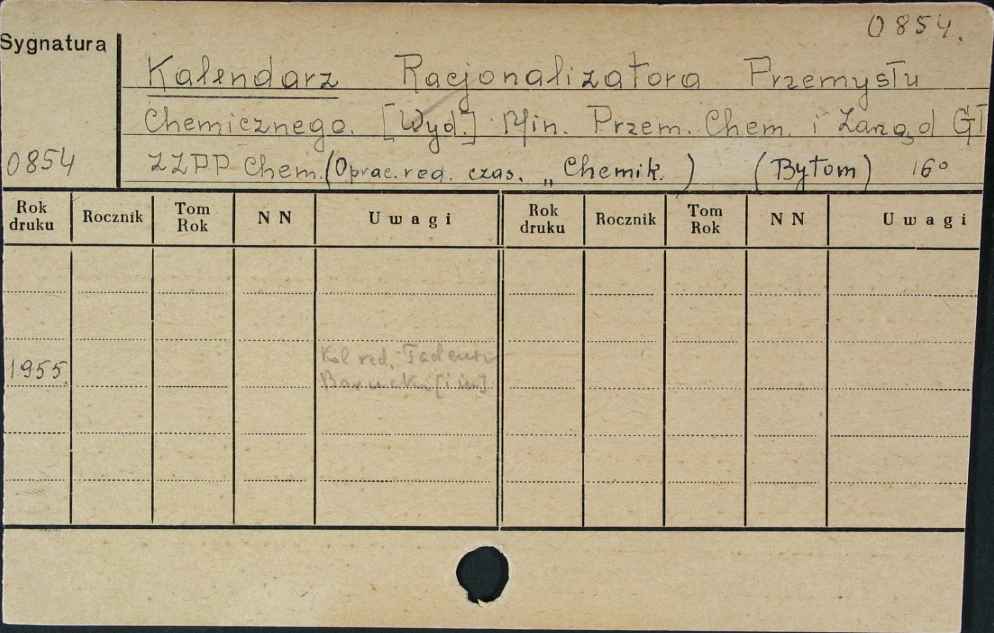 0854.
Sygnatura
Kalendarz Racjonalizatora Przemysłu
Chemicznego. [Wyd.] Min. Przem. Chem. i Zarząd Gł
0854
ZZPP Chem. (Oprac. red. czas. „Chemik.) (Bytom) 16°
Rok druku Rocznik Tom Rok N N Uwagi Rok druku Rocznik Tom Rok N N Uwagi
1955.
Kol red. Tadeusz
[i in.]